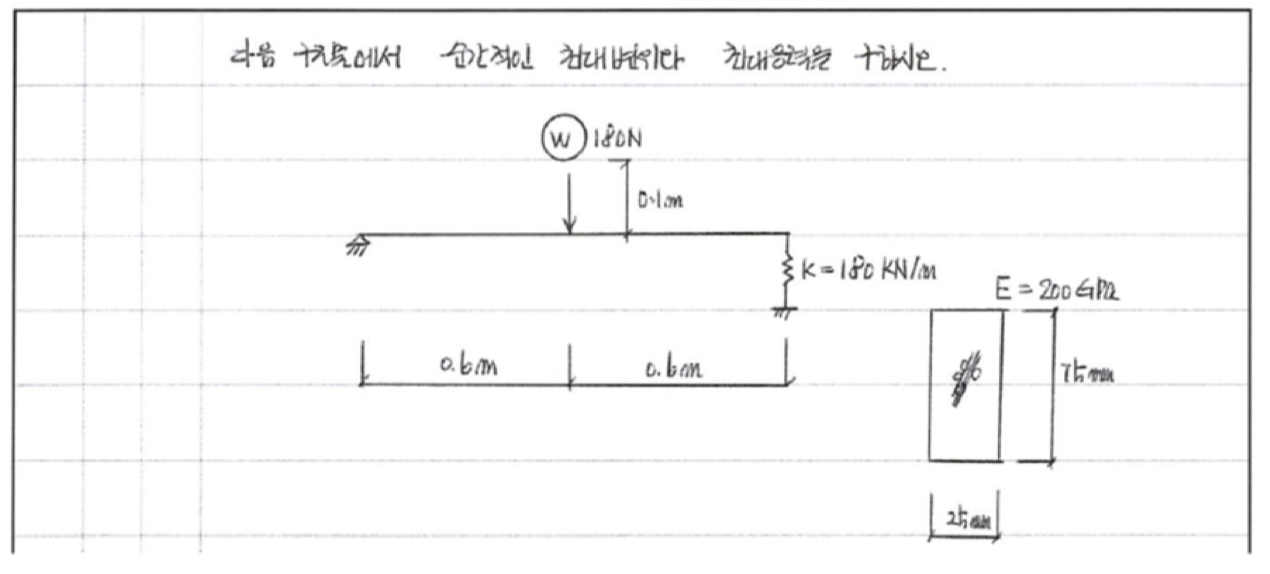 다음 구조물에서 순간적인 최대변위와 최대응력을 구하시오.
W 180N
0.1m
K = 180 KN/m
E = 200 GPa
0.6m 0.6m
75mm
25mm